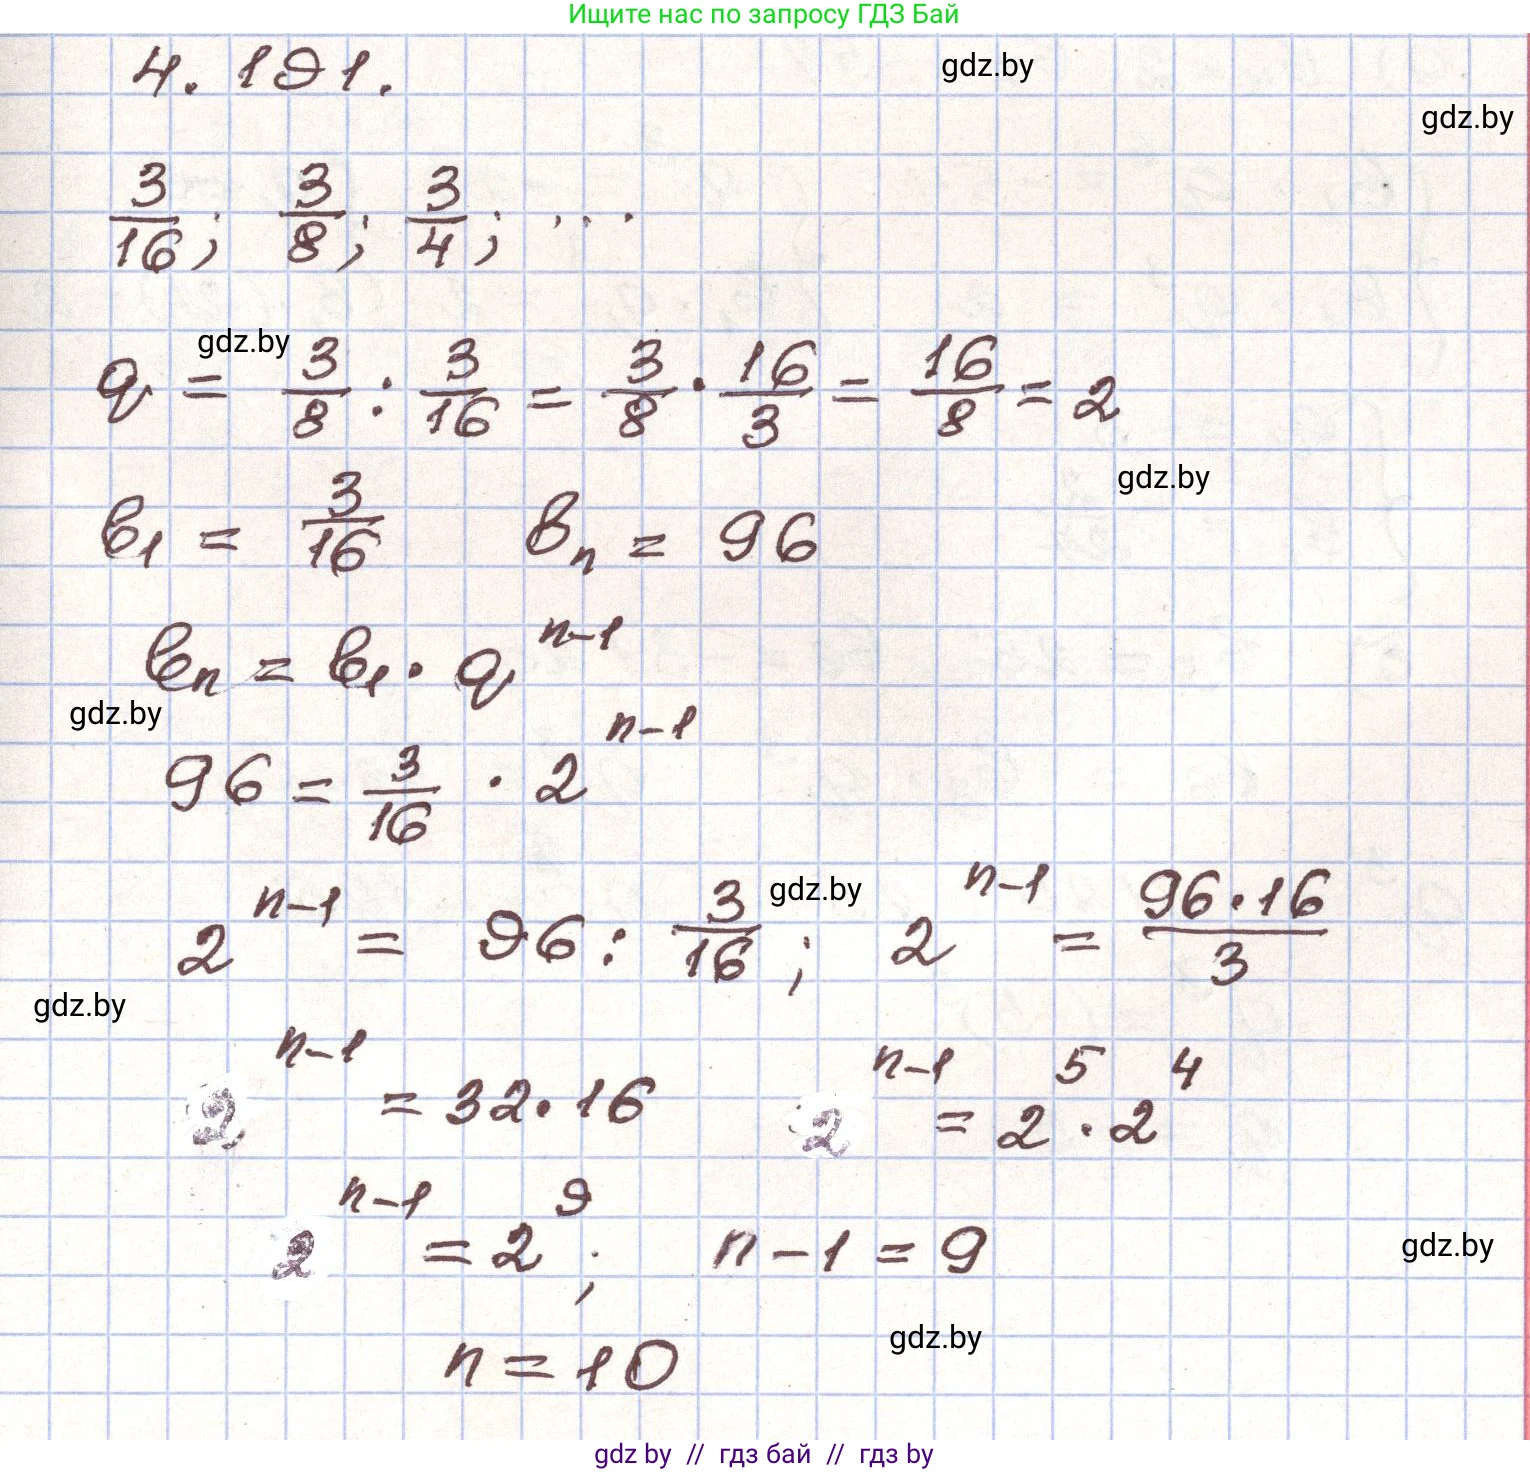 Ищите нас по запросу ГДЗ Бай
4.191.
gdz.by
gdz.by
3/16; 3/8; 3/4; ...
gdz.by
q = 3/8 : 3/16 = 3/8 · 16/3 = 16/8 = 2
gdz.by
b₁ = 3/16 bₙ = 96
bₙ = b₁ · qⁿ⁻¹
gdz.by
96 = 3/16 · 2ⁿ⁻¹
gdz.by
2ⁿ⁻¹ = 96 : 3/16; 2ⁿ⁻¹ = 96·16/3
gdz.by
2ⁿ⁻¹ = 32·16 2ⁿ⁻¹ = 2⁵ · 2⁴
2ⁿ⁻¹ = 2⁹; n-1 = 9
gdz.by
gdz.by
n = 10
gdz by // гдз бай // гдз by